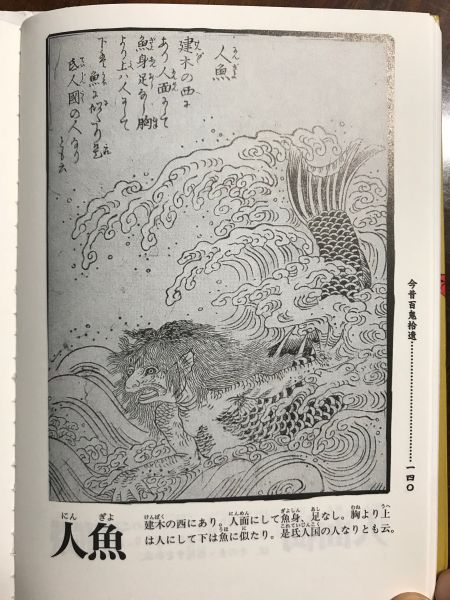 人魚
建木の西に
あり人面にして
魚身足なし胸
より上ハ人にして
下ハ魚に似たり是
氐人國の人なり
とも云
今昔百鬼拾遺………………………一四〇
にん ぎよ
人魚
けんぼく にんめん ぎよしん あし むね うへ
建木の西にあり。人面にして魚身、足なし。胸より上
うを に これていじんこく
は人にして下は魚に似たり。是氐人国の人なりとも云。